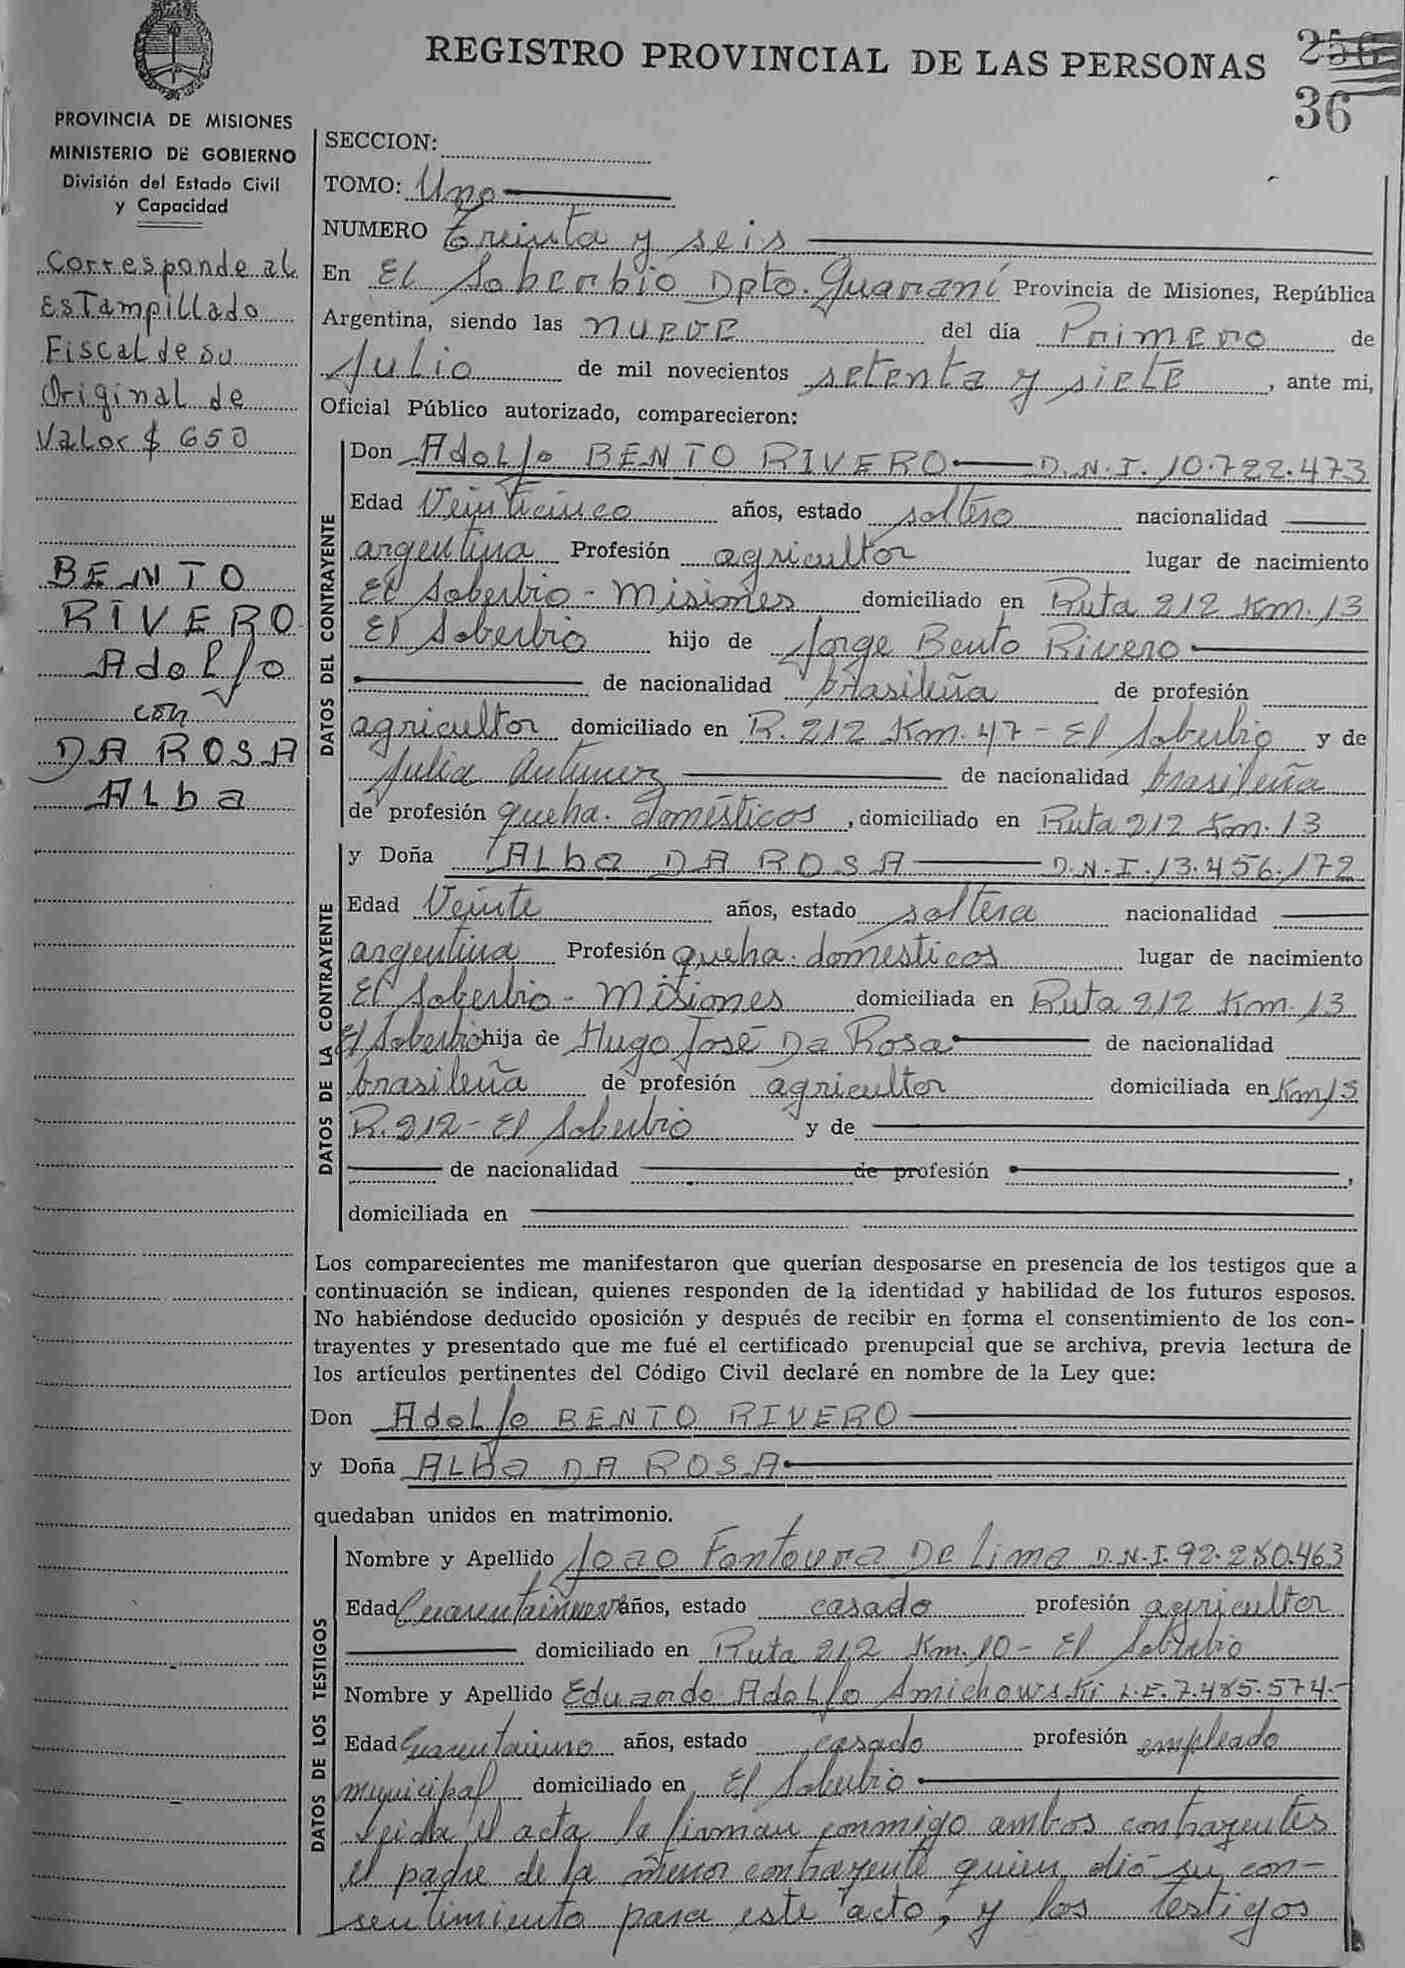 REGISTRO PROVINCIAL DE LAS PERSONAS
256
36
PROVINCIA DE MISIONES
MINISTERIO DE GOBIERNO
División del Estado Civil
y Capacidad
Corresponde al
Estampillado
Fiscal de su
Original de
Valor $ 650
BENTO
RIVERO
Adolfo
con
DA ROSA
Alba
SECCION:
TOMO: Uno
NUMERO Treinta y seis
En El Soberbio Dpto. Guaraní Provincia de Misiones, República
Argentina, siendo las nueve del día Primero de
Julio de mil novecientos setenta y siete, ante mi,
Oficial Público autorizado, comparecieron:
DATOS DEL CONTRAYENTE
Don Adolfo BENTO RIVERO D.N.I. 10.722.473
Edad Veinticinco años, estado soltero nacionalidad
argentina Profesión agricultor lugar de nacimiento
El Soberbio - Misiones domiciliado en Ruta 212 Km. 13
El Soberbio hijo de Jorge Bento Rivero
de nacionalidad brasileña de profesión
agricultor domiciliado en R. 212 Km. 47 - El Soberbio y de
Julia Antunez de nacionalidad brasileña
de profesión queha. domésticos, domiciliado en Ruta 212 Km. 13
DATOS DE LA CONTRAYENTE
y Doña Alba DA ROSA D.N.I. 13.456.172
Edad Veinte años, estado soltera nacionalidad
argentina Profesión queha. domésticos lugar de nacimiento
El Soberbio - Misiones domiciliada en Ruta 212 Km. 13
El Soberbio hija de Hugo José Da Rosa de nacionalidad
brasileña de profesión agricultor domiciliada en Km 13
R. 212 - El Soberbio y de
de nacionalidad de profesión ,
domiciliada en
Los comparecientes me manifestaron que querían desposarse en presencia de los testigos que a
continuación se indican, quienes responden de la identidad y habilidad de los futuros esposos.
No habiéndose deducido oposición y después de recibir en forma el consentimiento de los con-
trayentes y presentado que me fué el certificado prenupcial que se archiva, previa lectura de
los artículos pertinentes del Código Civil declaré en nombre de la Ley que:
Don Adolfo BENTO RIVERO
y Doña ALba DA ROSA
quedaban unidos en matrimonio.
DATOS DE LOS TESTIGOS
Nombre y Apellido Joao Fontoura De Lima D.N.I. 92.280.463
Edad Cuarentainueve años, estado casado profesión agricultor
domiciliado en Ruta 212 Km. 10 - El Soberbio
Nombre y Apellido Eduardo Adolfo Smichowski L.E. 7.485.574.-
Edad Cuarentaiuno años, estado casado profesión empleado
municipal domiciliado en El Soberbio
Leida el acta la firman conmigo ambos contrayentes
el padre de la menor contrayente quien dió su con-
sentimiento para este acto, y los testigos